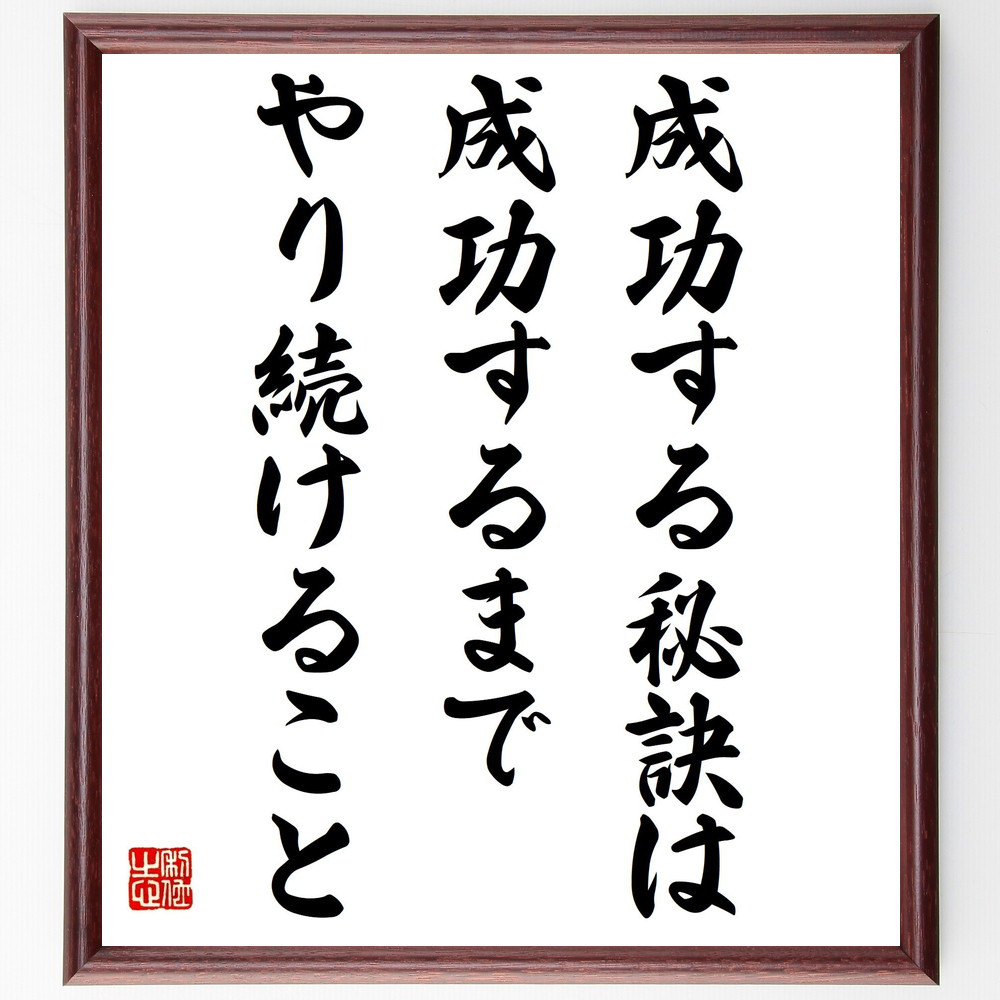 成功する秘訣は
成功するまで
やり続けること